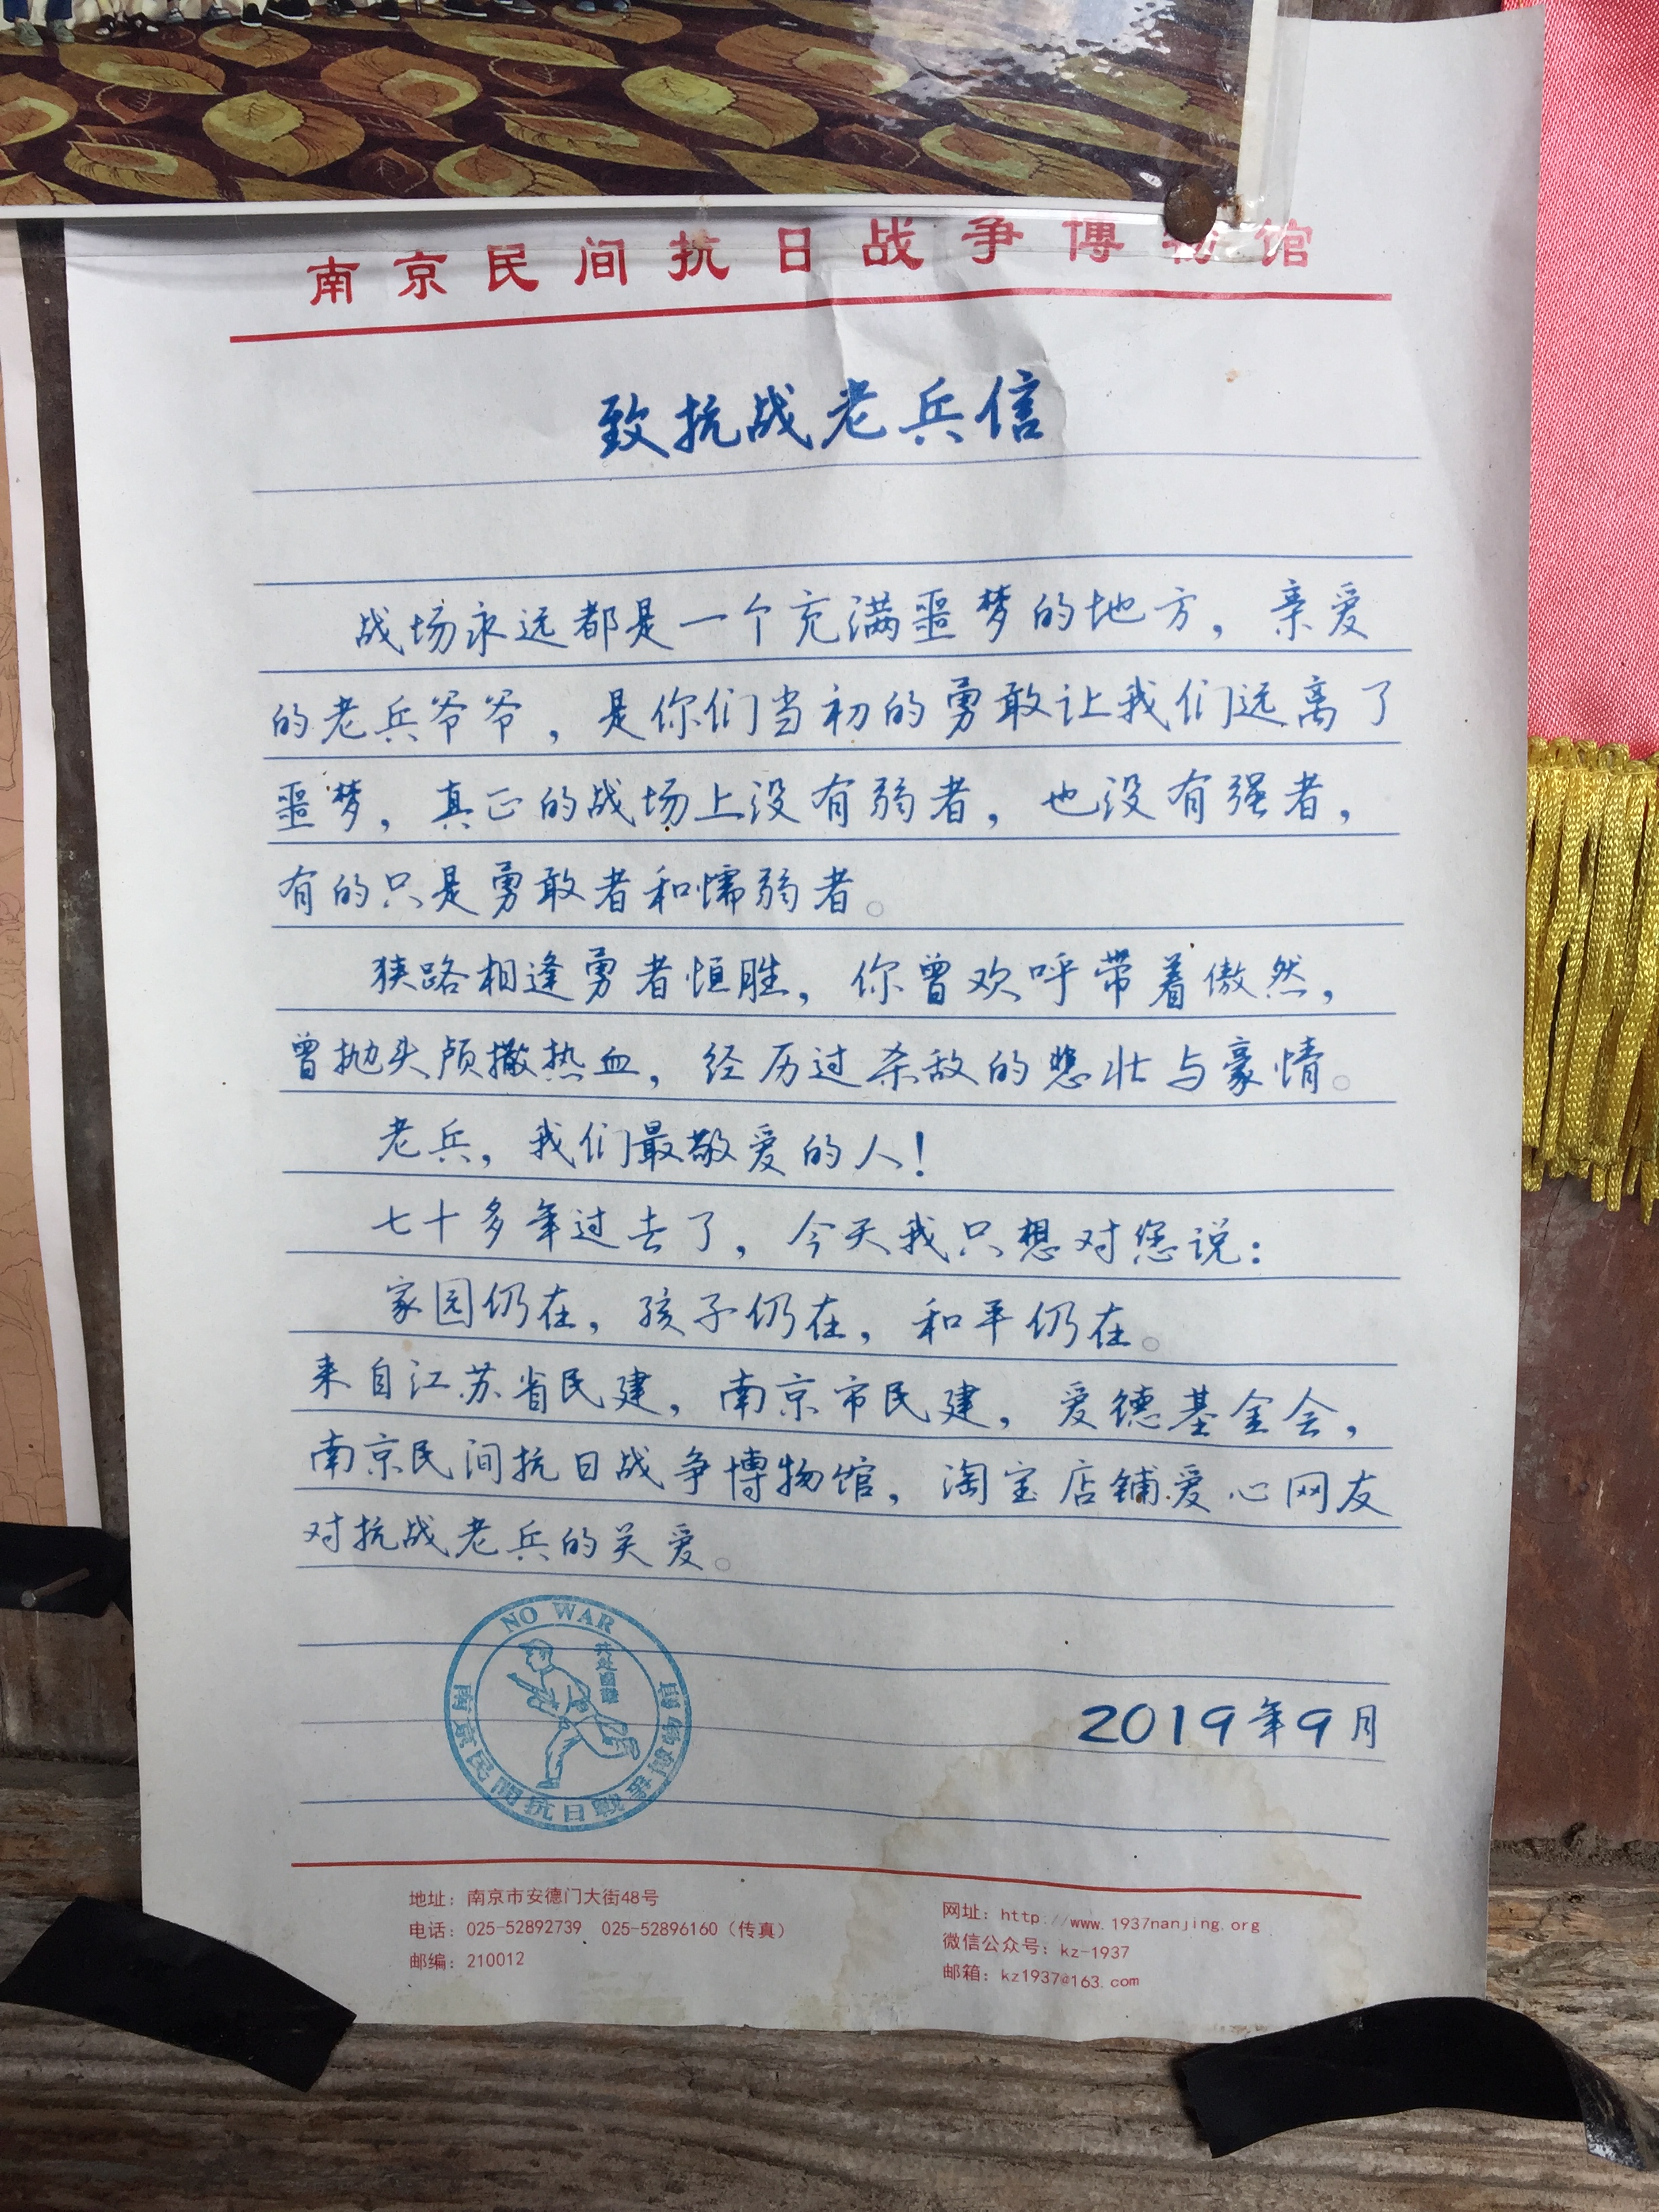 南京民间抗日战争博物馆
致抗战老兵信
战场永远都是一个充满噩梦的地方，亲爱
的老兵爷爷，是你们当初的勇敢让我们远离了
噩梦，真正的战场上没有弱者，也没有强者，
有的只是勇敢者和懦弱者。
狭路相逢勇者恒胜，你曾欢呼带着傲然，
曾抛头颅撒热血，经历过杀敌的悲壮与豪情。
老兵，我们最敬爱的人！
七十多年过去了，今天我只想对您说：
家园仍在，孩子仍在，和平仍在。
来自江苏省民建，南京市民建，爱德基金会，
南京民间抗日战争博物馆，淘宝店铺爱心网友
对抗战老兵的关爱。
NO WAR
共赴國難
南京民間抗日戰爭博物館
2019年9月
地址：南京市安德门大街48号
电话：025-52892739 025-52896160（传真）
邮编：210012
网址：http://www.1937nanjing.org
微信公众号：kz-1937
邮箱：kz1937@163.com